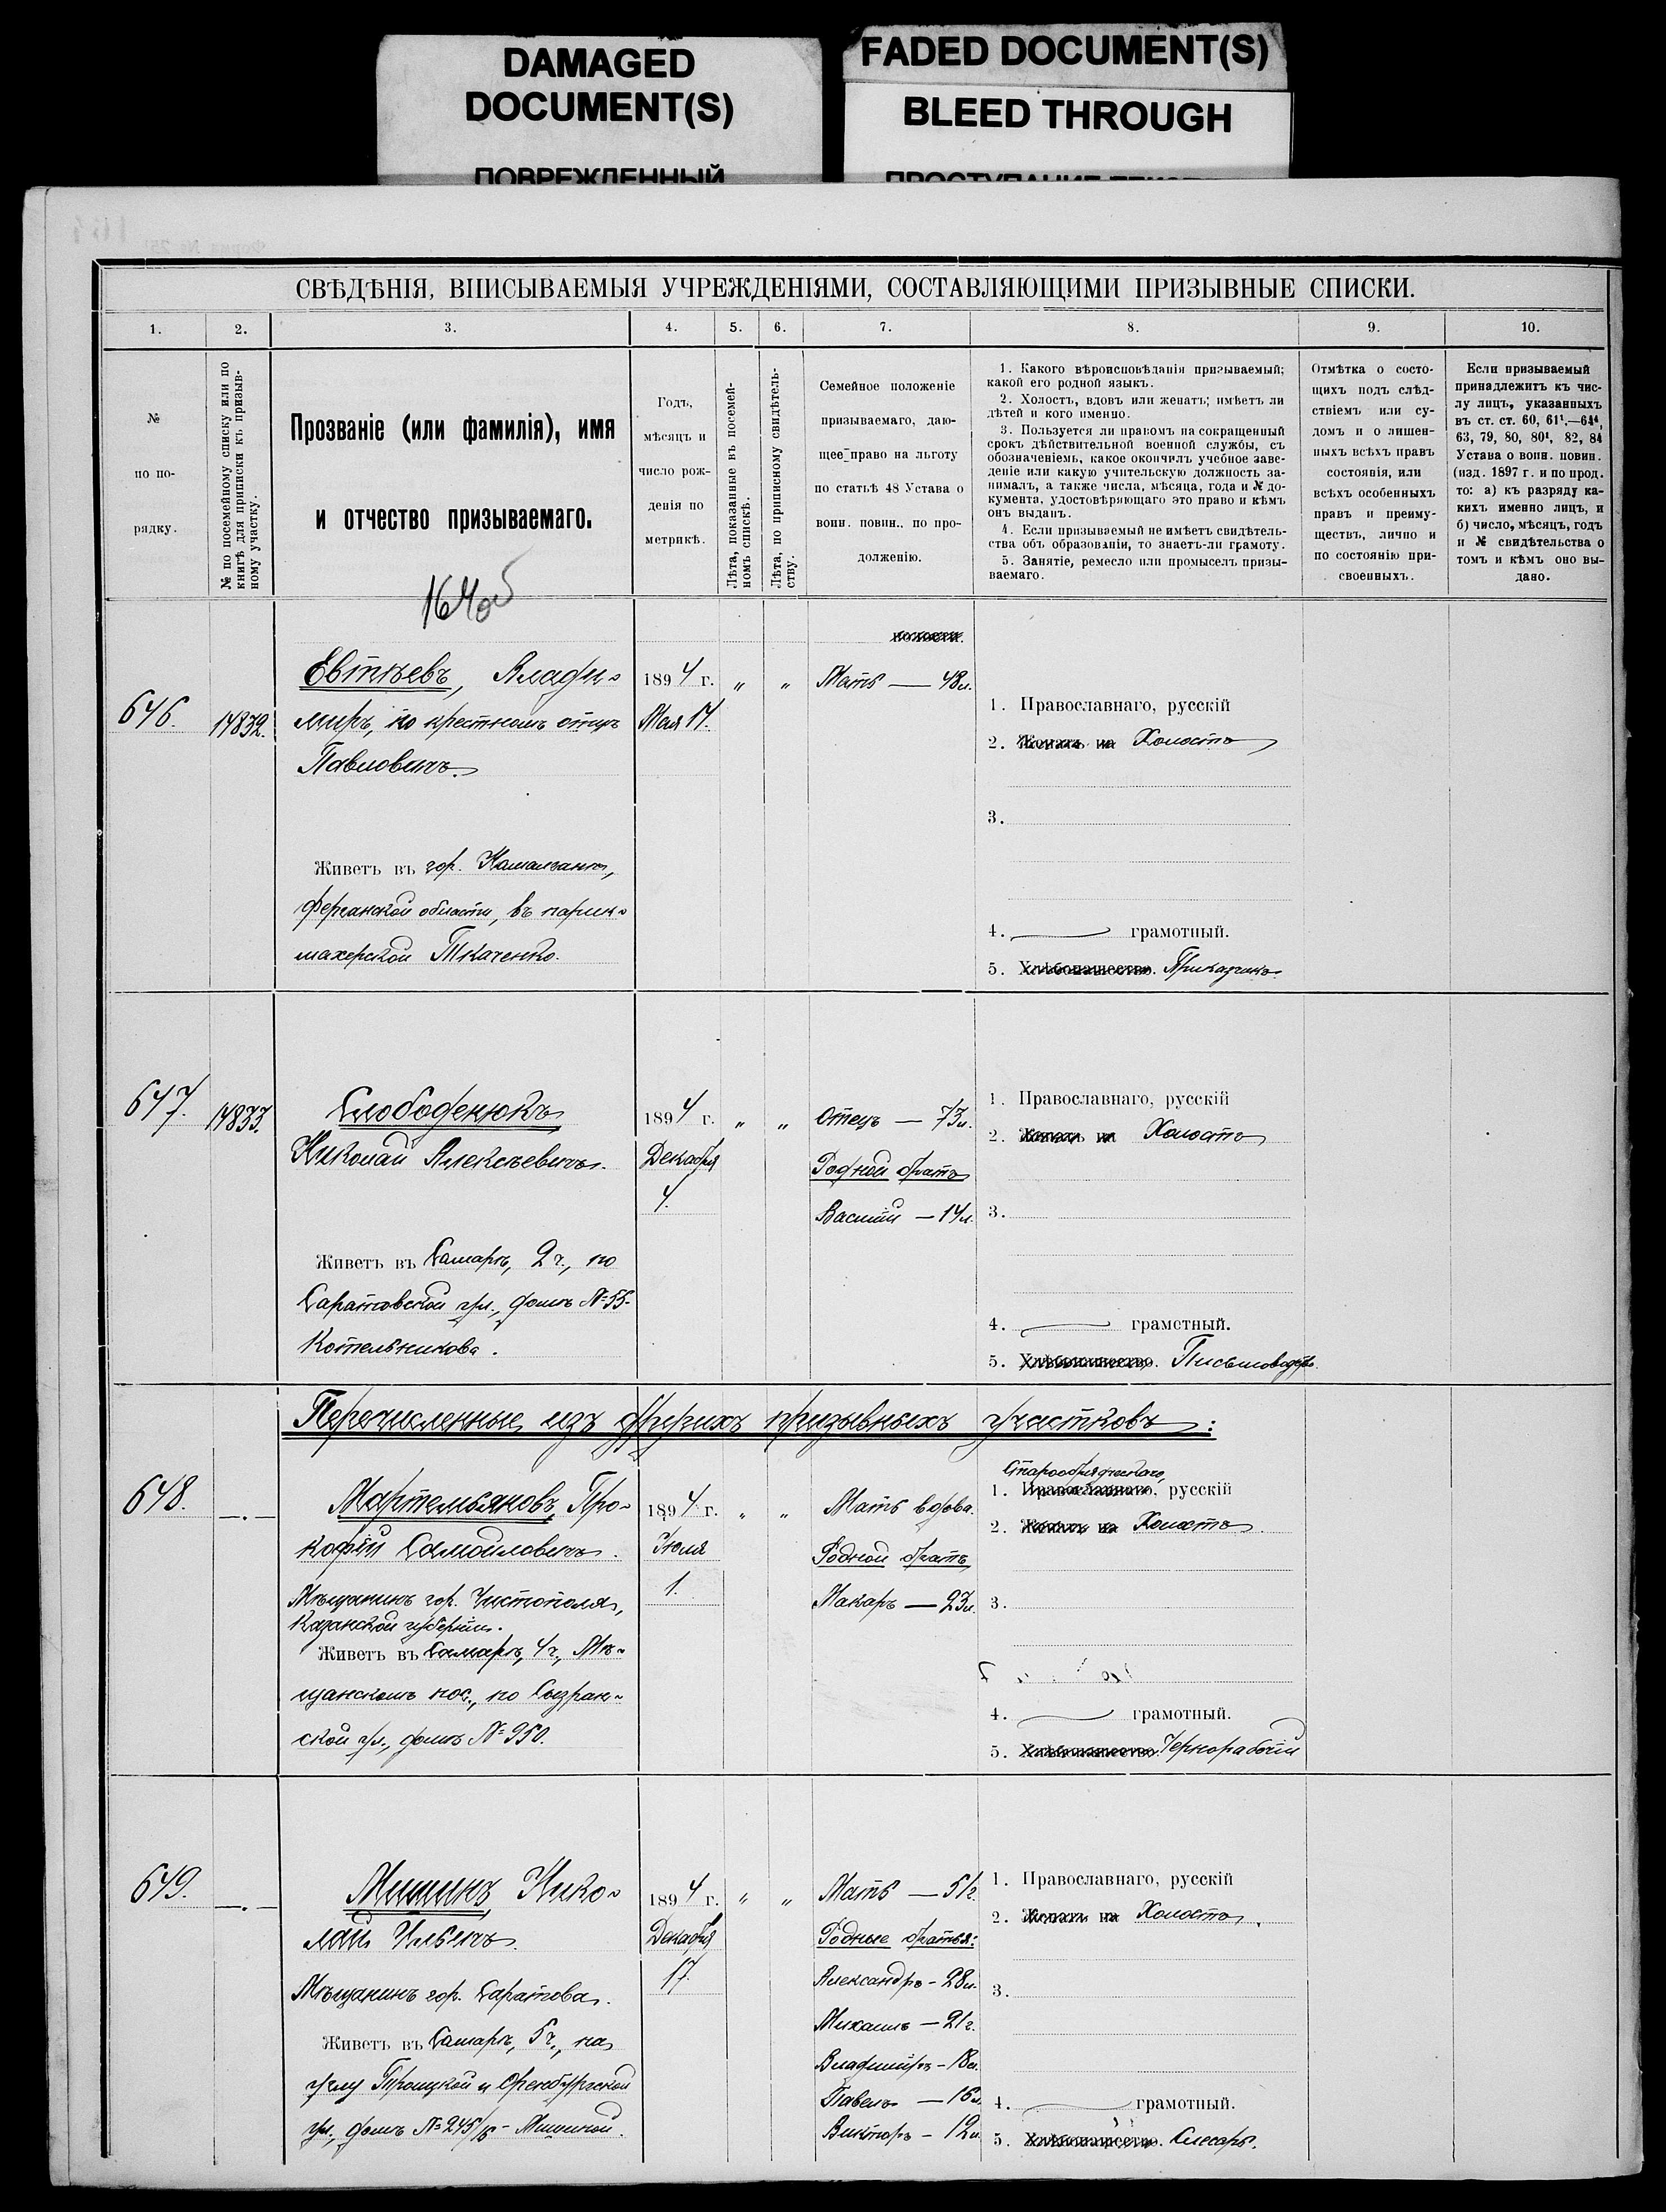 DAMAGED
DOCUMENT(S)
ПОВРЕЖДЕННЫЙ
FADED DOCUMENT(S)
BLEED THROUGH
СВѢДѢНІЯ, ВПИСЫВАЕМЫЯ УЧРЕЖДЕНІЯМИ, СОСТАВЛЯЮЩИМИ ПРИЗЫВНЫЕ СПИСКИ.
1.
2.
3.
4.
5.
6.
7.
8.
9.
10.
№
по по-
рядку.
№ по посемейному списку или по
книгѣ для приписки къ призыв-
ному участку.
Прозваніе (или фамилія), имя
и отчество призываемаго.
Годъ,
мѣсяцъ и
число рож-
денія по
метрикѣ.
Лѣта, показанные въ посемей-
номъ спискѣ.
Лѣта, по приписному свидѣтель-
ству.
Семейное положеніе
призываемаго, даю-
щее право на льготу
по статьѣ 48 Устава о
воин. повин.. по про-
долженію.
1. Какого вѣроисповѣданія призываемый;
какой его родной языкъ.
2. Холостъ, вдовъ или женатъ; имѣетъ ли
дѣтей и кого именно.
3. Пользуется ли правомъ на сокращенный
срокъ дѣйствительной военной службы, съ
обозначеніемъ, какое окончилъ учебное заве-
деніе или какую учительскую должность за-
нималъ, а также числа, мѣсяца, года и № до-
кумента, удостовѣряющаго это право и кѣмъ
онъ выданъ.
4. Если призываемый не имѣетъ свидѣтель-
ства объ образованіи, то знаетъ-ли грамоту.
5. Занятіе, ремесло или промыселъ призы-
ваемаго.
Отмѣтка о состо-
щихъ подъ слѣд-
ствіемъ или су-
домъ и о лишен-
ныхъ всѣхъ правъ
состоянія, или
всѣхъ особенныхъ
правъ и преиму-
ществъ, лично и
по состоянію при-
своенныхъ.
Если призываемый
принадлежитъ къ чис-
лу лицъ, указанныхъ
въ ст. ст. 60, 61¹.—64⁴,
63, 79, 80, 80¹, 82, 84
Устава о воин. повин.
(изд. 1897 г. и по прод.
то: а) къ разряду ка-
кихъ именно лицъ, и
б) число, мѣсяцъ, годъ
и № свидѣтельства о
томъ и кѣмъ оно вы-
дано.
164об
646.
14832.
Евтѣевъ, Влади-
миръ, по крестному отцу
Павловичъ.
Живетъ въ гор. Намангань,
Ферганской области, въ парик-
махерской Ткаченко.
1894 г.
Мая 14.
„
„
Мать — 48 л.
1. Православнаго, русскій
2. Женатъ на Холостъ
3.
4. грамотный.
5. Хлѣбопашество. Приказчикъ.
647.
14833.
Слободенюкъ
Николай Алексѣевичъ.
Живетъ въ Самарѣ, 2 ч., по
Саратовской ул., домъ № 55
Котельникова.
1894 г.
Декабря
4.
„
„
Отецъ — 73 л.
Родной братъ
Василій — 14 л.
1. Православнаго, русскій
2. Женатъ на Холостъ
3.
4. грамотный.
5. Хлѣбопашество. Письмоводство.
Перечисленные изъ другихъ призывныхъ участковъ:
648.
—.—
Мартемьяновъ, Про-
кофій Самойловичъ.
Мѣщанинъ гор. Чистополя,
Казанской губерніи.
Живетъ въ Самарѣ, 4 ч., Мѣ-
щанскомъ пос., по Сызран-
ской ул., домъ № 950.
1894 г.
Іюля
1.
„
„
Мать вдова.
Родной братъ
Макаръ — 23 л.
Старообрядческаго,
1. Православнаго, русскій
2. Женатъ на Холостъ.
3.
4. грамотный.
5. Хлѣбопашество. Чернорабочій
649.
—.—
Мишинъ, Нико-
лай Ильичъ.
Мѣщанинъ гор. Саратова.
Живетъ въ Самарѣ, 5 ч., на
углу Троицкой и Оренбургской
ул., домъ № 245/б - Мишиной.
1894 г.
Декабря
17.
„
„
Мать — 51 г.
Родные братья:
Александръ - 28 л.
Михаилъ — 21 г.
Владиміръ - 18 л.
Павелъ — 16 л.
Викторъ — 12 л.
1. Православнаго, русскій
2. Женатъ на Холостъ.
3.
4. грамотный.
5. Хлѣбопашество. Слесарь.